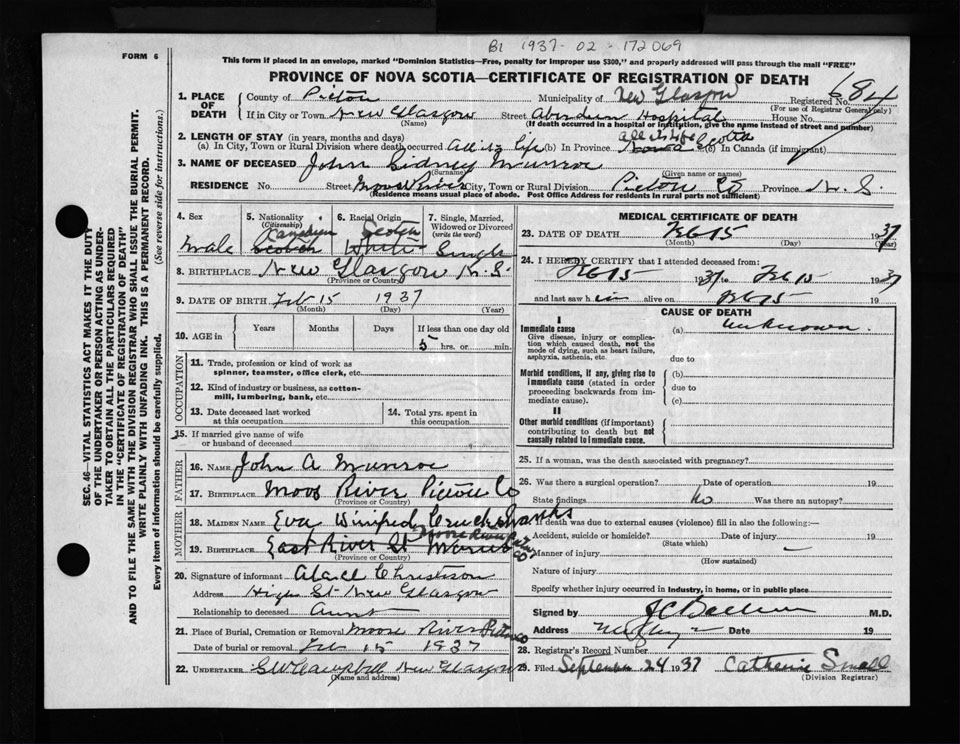 B1 1937-02-172069
FORM 6
This form if placed in an envelope, marked "Dominion Statistics—Free, penalty for improper use $300," and properly addressed will pass through the mail "FREE"
PROVINCE OF NOVA SCOTIA—CERTIFICATE OF REGISTRATION OF DEATH
1. PLACE OF DEATH County of Pictou Municipality of New Glasgow Registered No. 684
(For use of Registrar General only)
If in City or Town New Glasgow Street Aberdeen Hospital House No.
(Name) (If death occurred in a hospital or institution, give the name instead of street and number)
2. LENGTH OF STAY (in years, months and days) all its life
(a) In City, Town or Rural Division where death occurred all its life (b) In Province Nova Scotia (c) In Canada (if immigrant)
3. NAME OF DECEASED John Sidney Munroe
(Surname) (Given name or names)
RESIDENCE No. Street Moose River City, Town or Rural Division Pictou Co Province N.S.
(Residence means usual place of abode. Post Office Address for residents in rural parts not sufficient)
SEC. 46—VITAL STATISTICS ACT MAKES IT THE DUTY
OF THE UNDERTAKER OR PERSON ACTING AS UNDER-
TAKER TO OBTAIN ALL THE PARTICULARS REQUIRED
IN THE "CERTIFICATE OF REGISTRATION OF DEATH"
AND TO FILE THE SAME WITH THE DIVISION REGISTRAR WHO SHALL ISSUE THE BURIAL PERMIT.
WRITE PLAINLY WITH UNFADING INK. THIS IS A PERMANENT RECORD.
Every item of information should be carefully supplied. (See reverse side for instructions.)
4. Sex
Male
5. Nationality
(Citizenship)
Canadian
Scotch
6. Racial Origin
Scotch
White
7. Single, Married,
Widowed or Divorced
(write the word)
Single
8. BIRTHPLACE New Glasgow N.S.
(Province or Country)
9. DATE OF BIRTH Feb 15 1937
(Month) (Day) (Year)
10. AGE in Years Months Days If less than one day old
5 hrs. or min.
OCCUPATION
11. Trade, profession or kind of work as
spinner, teamster, office clerk, etc.
12. Kind of industry or business, as cotton-
mill, lumbering, bank, etc.
13. Date deceased last worked
at this occupation
14. Total yrs. spent in
this occupation
15. If married give name of wife
or husband of deceased
FATHER
16. NAME John A Munroe
17. BIRTHPLACE Moos River Pictou Co
(Province or Country)
MOTHER
18. MAIDEN NAME Eva Winifred Cruickshanks
19. BIRTHPLACE East River St Marys Moose River Pictou Co
(Province or Country)
20. Signature of informant Christison
Address High St New Glasgow
Relationship to deceased Aunt
21. Place of Burial, Cremation or Removal Moose River Pictou Co
Date of burial or removal Feb 15 1937
22. UNDERTAKER G W Campbell New Glasgow
(Name and address)
MEDICAL CERTIFICATE OF DEATH
23. DATE OF DEATH Feb 15 1937
(Month) (Day) (Year)
24. I HEREBY CERTIFY that I attended deceased from:
Feb 15 1937 to Feb 15 1937
and last saw h im alive on Feb 15 19
CAUSE OF DEATH
I
Immediate cause (a) Unknown.
Give disease, injury or complica-
tion which caused death, not the
mode of dying, such as heart failure,
asphyxia, asthenia, etc. due to
Morbid conditions, if any, giving rise to (b)
immediate cause (stated in order
proceeding backwards from im-
mediate cause). due to
(c)
II
Other morbid conditions (if important)
contributing to death but not
causally related to immediate cause.
25. If a woman, was the death associated with pregnancy?
26. Was there a surgical operation? Date of operation 19
State findings No Was there an autopsy?
27. If death was due to external causes (violence) fill in also the following:—
Accident, suicide or homicide? Date of injury 19
(State which)
Manner of injury
(How sustained)
Nature of injury
Specify whether injury occurred in Industry, in home, or in public place
Signed by M.D.
Address Date 19
28. Registrar's Record Number
29. Filed September 24 1937 Catherine Small
(Division Registrar)